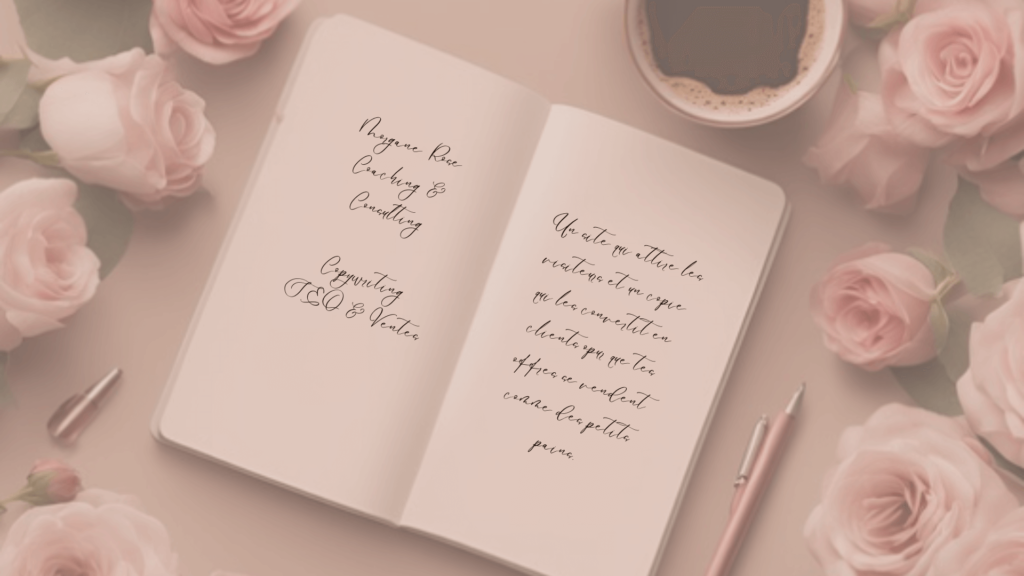 Morgane Rose
Coaching &
Consulting
Copywriting
SEO & Ventes
Un site qui attire les
visiteurs et un copie
qui les convertit en
clients pour que tes
offres se vendent
comme des petits
pains.